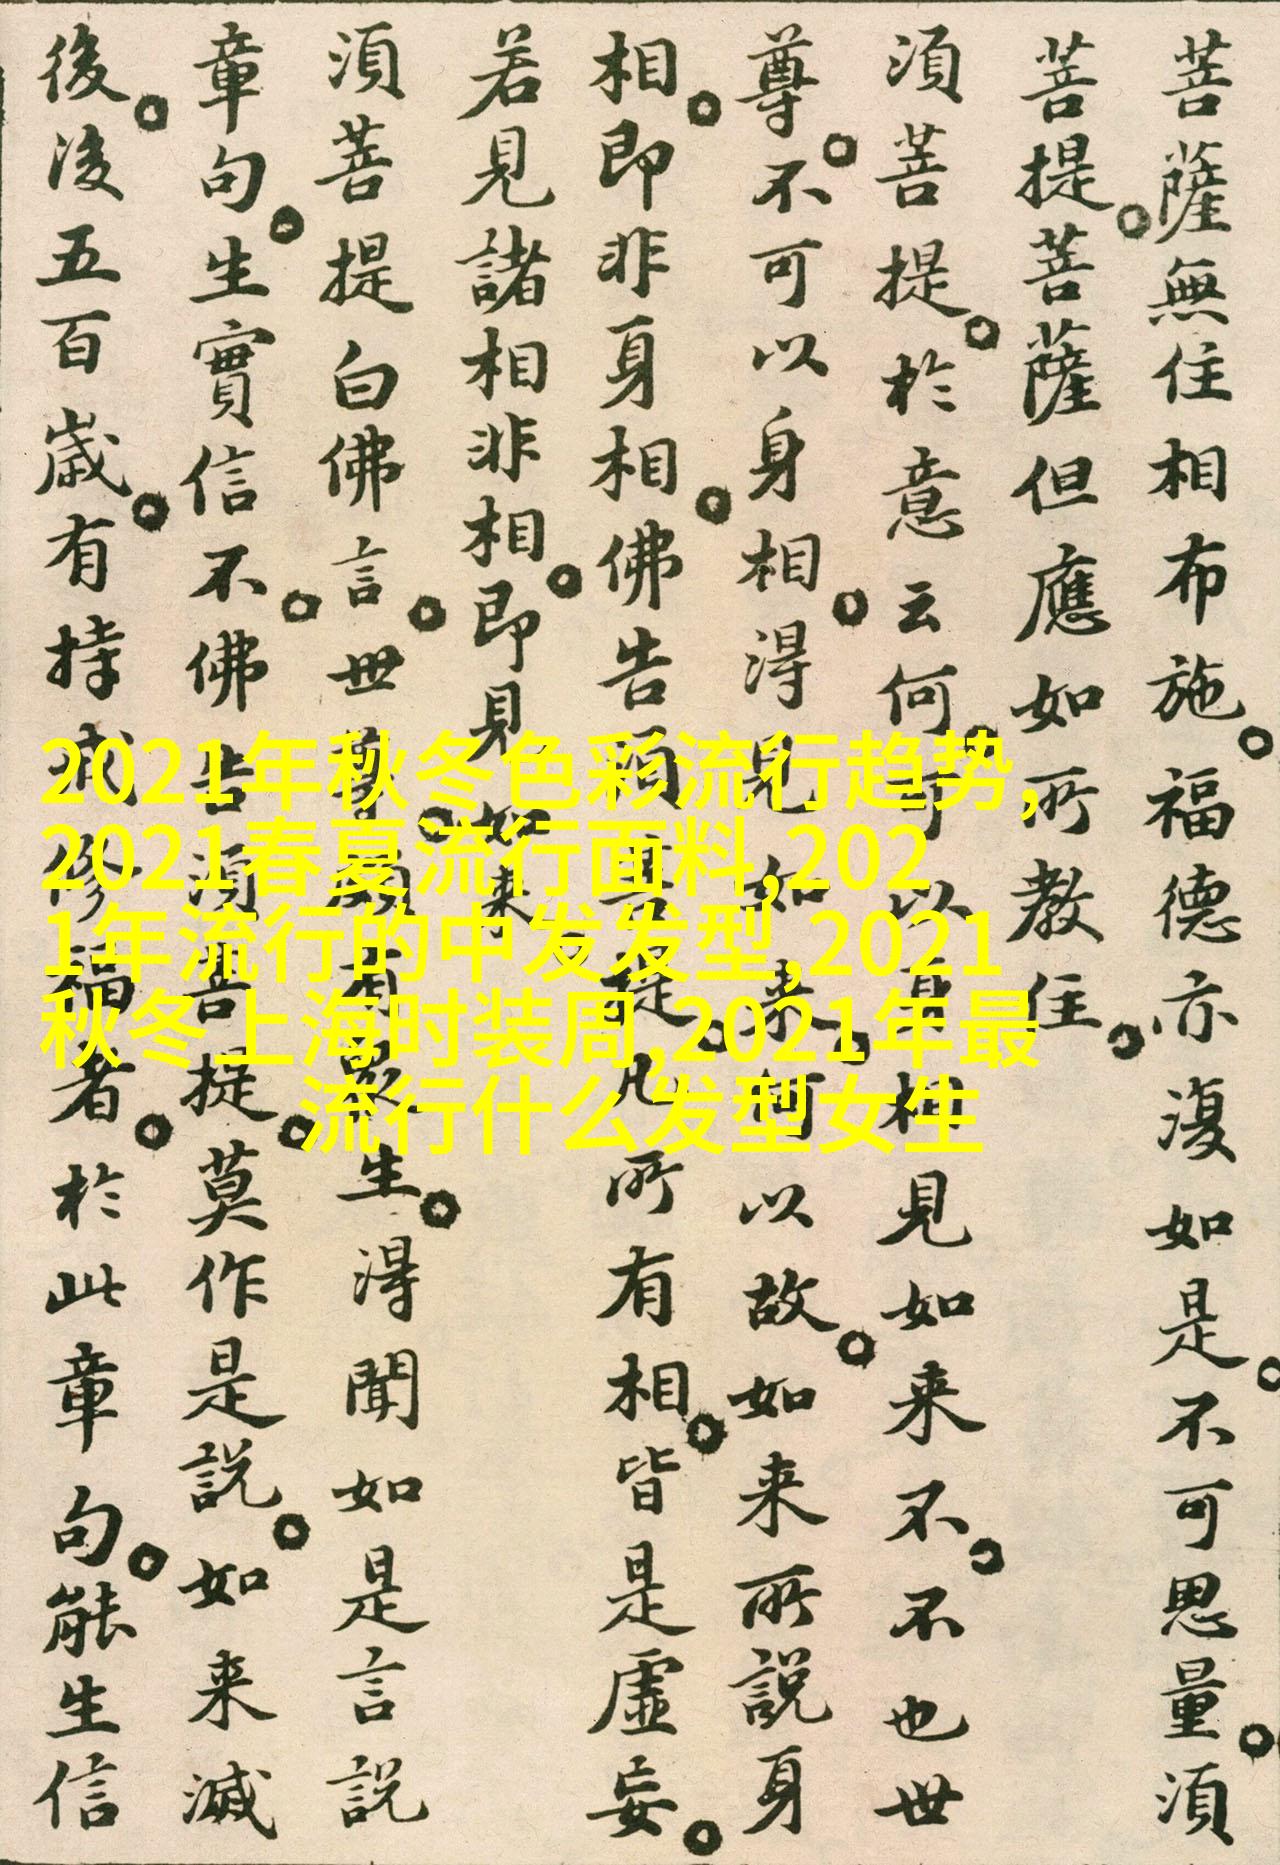 菩薩無住相布施。福德亦復如是。不可思量。須
菩提。菩薩但應如所教住。
須菩提。於意云何。可以身相見如来不。不也世
尊。不可以身相。得見如来。何以故。如来所說身
相。即非身相。佛告須菩提。凡所有相。皆是虛妄。
若見諸相非相。即見如来
須菩提白佛言。世尊。頗有眾生。得聞如是言說
章句。生實信不。佛告須菩提。莫作是說。如来滅
後。後五百歲。有持戒修福者。於此章句。能生信
2021年秋冬色彩流行趋势,
2021春夏流行面料,202
1年流行的中发发型,2021
秋冬上海时装周,2021年最
流行什么发型女生